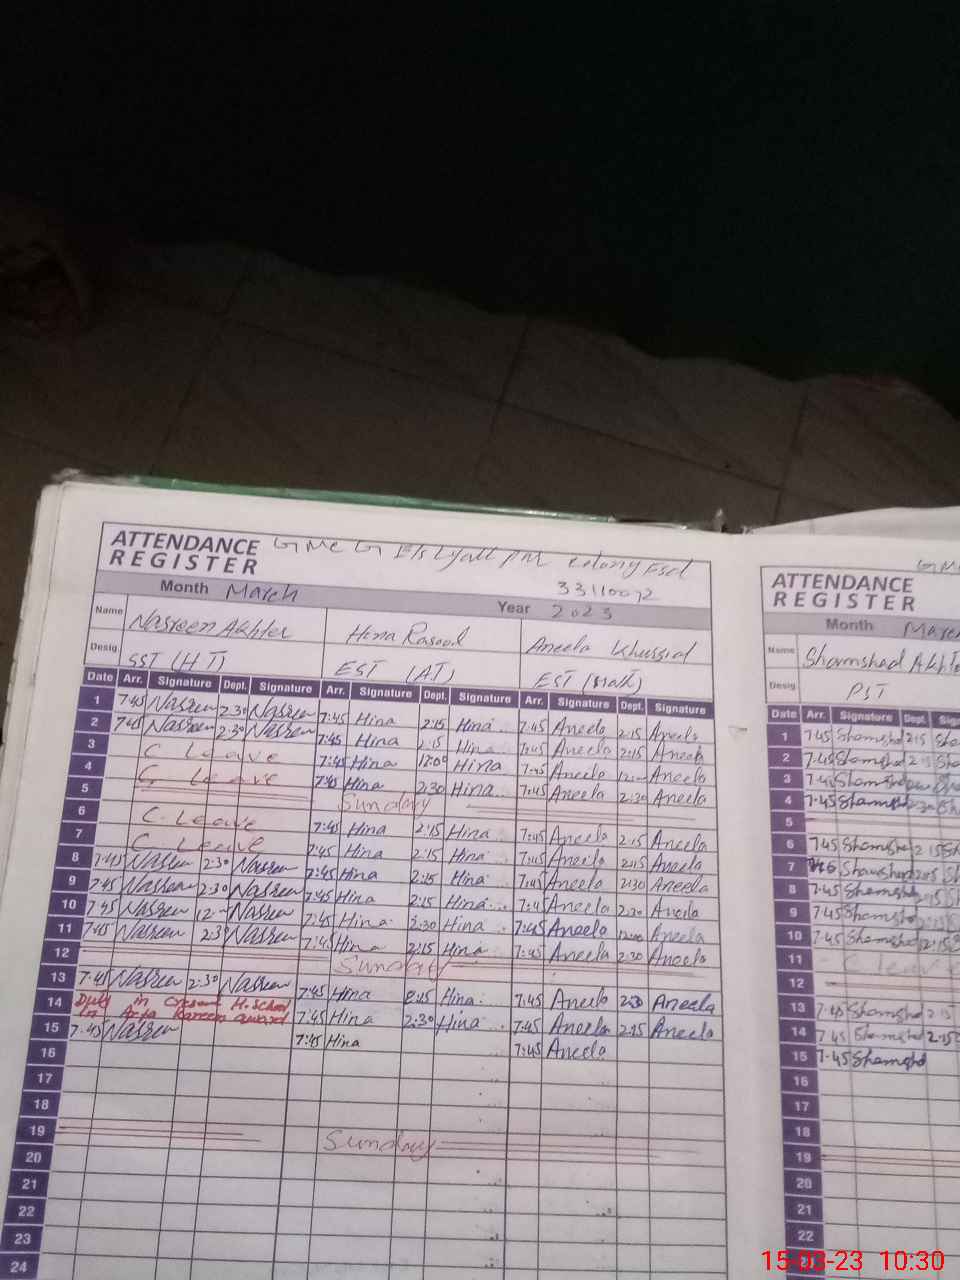 ATTENDANCE
REGISTER
GMC G E/s Lyall pur Colony Fsd
33110072
Month March Year 2023
Name Nasreen Akhter Hina Rasool Aneela Khursid
Desig. SST (H.T) EST (AT) EST (Math)
Date Arr. Signature Dept. Signature Arr. Signature Dept. Signature Arr. Signature Dept. Signature
1 7:45 Nasreen 2:30 Nasreen 7:45 Hina 2:15 Hina 7:45 Aneela 2:15 Aneela
2 7:45 Nasreen 2:30 Nasreen 7:45 Hina 2:15 Hina 7:45 Aneela 2:15 Aneela
3 C. Leave 7:45 Hina 12:00 Hina 7:45 Aneela 12:— Aneela
4 C. Leave 7:45 Hina 2:30 Hina 7:45 Aneela 2:30 Aneela
5 Sunday
6 C. Leave 7:45 Hina 2:15 Hina 7:45 Aneela 2:15 Aneela
7 C. Leave 7:45 Hina 2:15 Hina 7:45 Aneela 2:15 Aneela
8 7:45 Nasreen 2:30 Nasreen 7:45 Hina 2:15 Hina 7:45 Aneela 2:30 Aneela
9 7:45 Nasreen 2:30 Nasreen 7:45 Hina 2:15 Hina 7:45 Aneela 2:30 Aneela
10 7:45 Nasreen 12:— Nasreen 7:45 Hina Hina 7:45 Aneela 12:00 Aneela
11 7:45 Nasreen 2:30 Nasreen 7:45 Hina 2:15 Hina 7:45 Aneela 2:30 Aneela
12 Sunday
13 7:45 Nasreen 2:30 Nasreen 7:45 Hina 2:15 Hina 7:45 Aneela 2:30 Aneela
14 Duty in Cresent H.School in Arfa Kareem award 7:45 Hina 2:30 Hina 7:45 Aneela 2:15 Aneela
15 7:45 Nasreen 7:45 Hina 7:45 Aneela
16
17
18
19 Sunday
20
21
22
23
24
ATTENDANCE
REGISTER
Month March
Name Shamshad
Desig PST
Date Arr. Signature Dept.
1 7:45 Shamshad 2:15
2 7:45 Shamshad 2:15
3 7:45 Shamshad
4 7:45 Shamshad 2:30
5
6 7:45 Shamshad 2:15
7 7:45 Shamshad 2:15
8 7:45 Shamshad 2:15
9 7:45 Shamshad 2:15
10 7:45 Shamshad 12:15
11 C leave
12
13 7:45 Shamshad 2:15
14 7:45 Shamshad 2:15
15 7:45 Shamshad
16
17
18
19
20
21
22
15-03-23 10:30